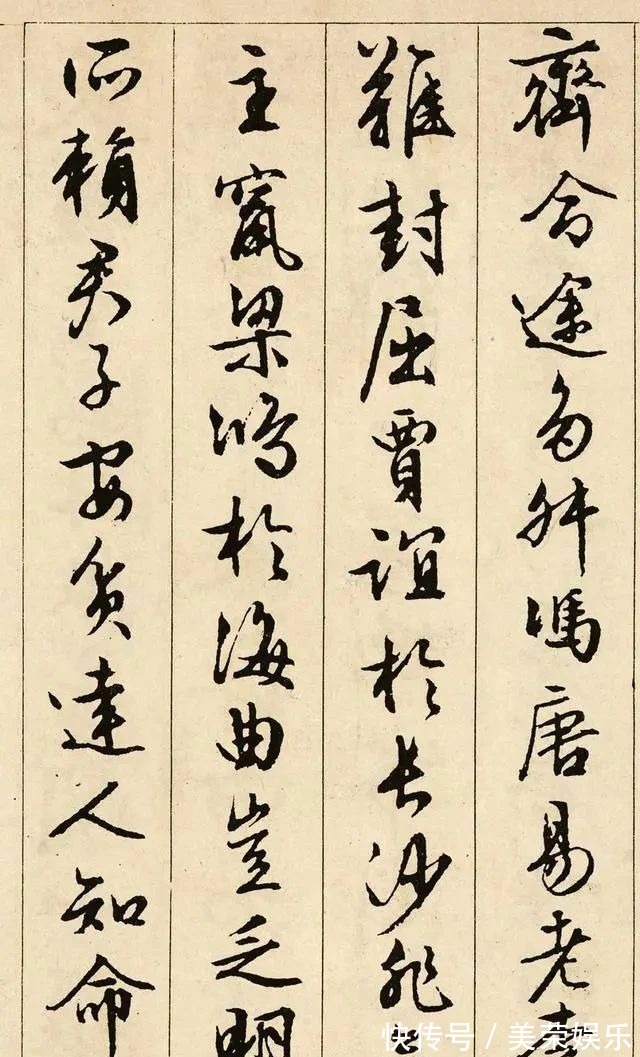 齊命途多舛馮唐易老
難封屈賈誼於長沙非
主竄梁鴻於海曲豈乏明
所賴君子安貧達人知命
快传号 / 美荣娱乐